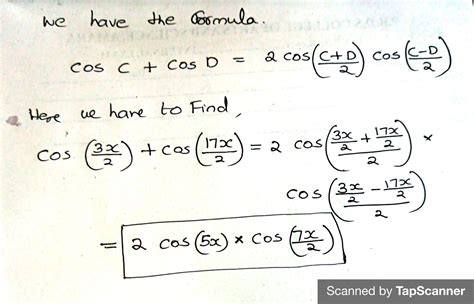 we have the formula.
cos C + cos D = 2 cos(C+D/2) cos(C-D/2)
Here we have to Find,
cos (3x/2) + cos (17x/2) = 2 cos(3x/2 + 17x/2 / 2) ×
cos (3x/2 - 17x/2 / 2)
= 2 cos(5x) × cos(7x/2)
Scanned by TapScanner